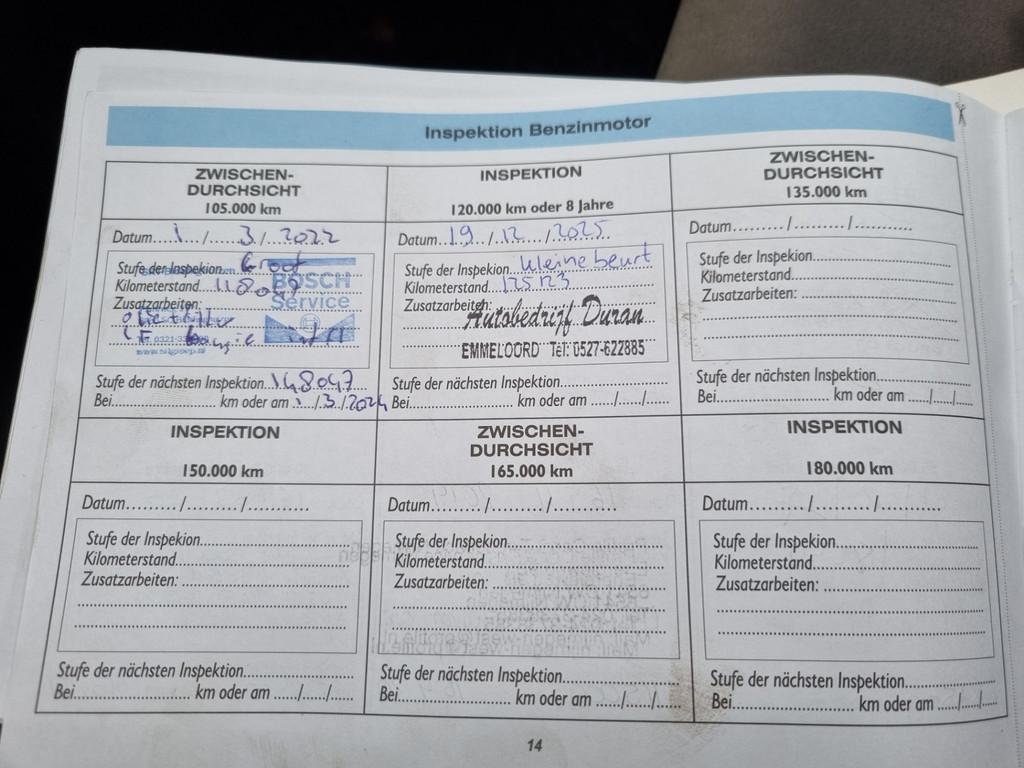 Inspektion Benzinmotor
ZWISCHEN-
DURCHSICHT
105.000 km
Datum 1 / 3 / 2022
Stufe der Inspekion Groot
Kilometerstand
Zusatzarbeiten:
BOSCH
Service
Stufe der nächsten Inspektion 148047
Bei km oder am 1 / 3 / 2024
INSPEKTION
120.000 km oder 8 Jahre
Datum 19 / 12 / 2025
Stufe der Inspekion kleine beurt
Kilometerstand 125123
Zusatzarbeiten:
Autobedrijf Duran
EMMELOORD Tel: 0527-622885
Stufe der nächsten Inspektion
Bei km oder am / /
ZWISCHEN-
DURCHSICHT
135.000 km
Datum / /
Stufe der Inspekion
Kilometerstand
Zusatzarbeiten:
Stufe der nächsten Inspektion
Bei km oder am / /
INSPEKTION
150.000 km
Datum / /
Stufe der Inspekion
Kilometerstand
Zusatzarbeiten:
Stufe der nächsten Inspektion
Bei km oder am / /
ZWISCHEN-
DURCHSICHT
165.000 km
Datum / /
Stufe der Inspekion
Kilometerstand
Zusatzarbeiten:
Stufe der nächsten Inspektion
Bei km oder am / /
INSPEKTION
180.000 km
Datum / /
Stufe der Inspekion
Kilometerstand
Zusatzarbeiten:
Stufe der nächsten Inspektion
Bei km oder am / /
14